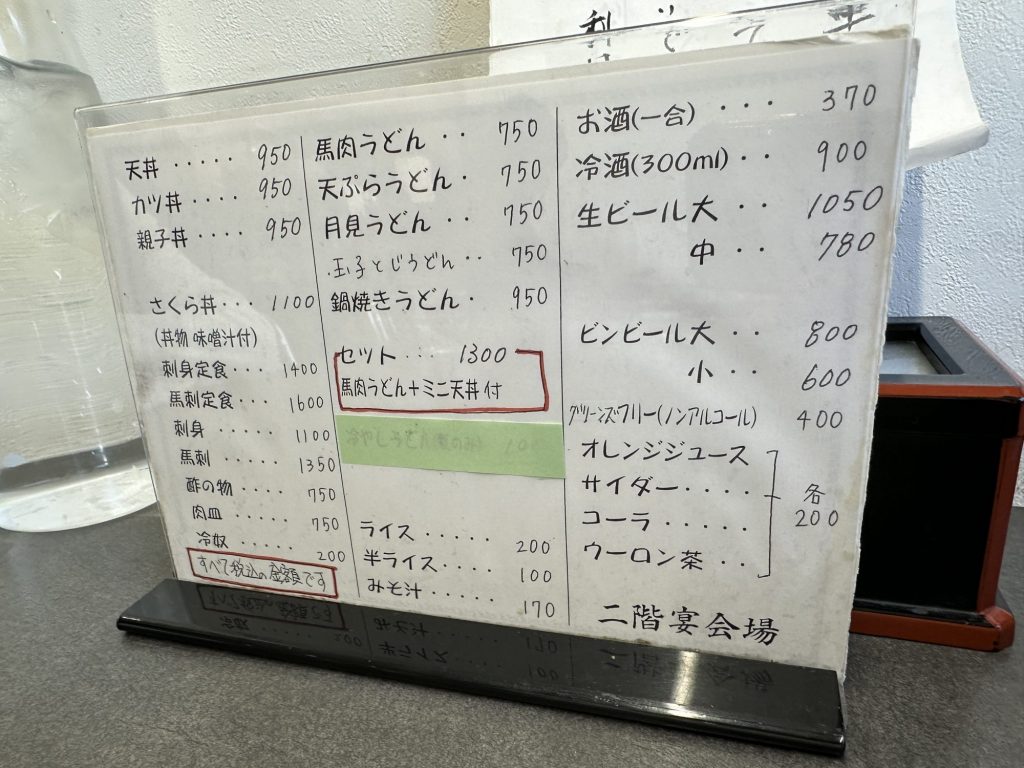 天丼 ····· 950
カツ丼 ···· 950
親子丼 ···· 950
さくら丼 ··· 1100
(丼物 味噌汁付)
刺身定食 ··· 1400
馬刺定食 ··· 1600
刺身 ····· 1100
馬刺 ····· 1350
酢の物 ···· 750
肉皿 ····· 750
冷奴 ····· 200
すべて税込の金額です
馬肉うどん ·· 750
天ぷらうどん · 750
月見うどん ·· 750
玉子とじうどん ·· 750
鍋焼きうどん · 950
セット ··· 1300
馬肉うどん+ミニ天丼付
冷やしうどん
ライス ····· 200
半ライス ···· 100
みそ汁 ····· 170
お酒(一合) ··· 370
冷酒(300ml) ·· 900
生ビール大 ·· 1050
中 ·· 780
ビンビール大 ·· 800
小 ·· 600
グリーンズフリー(ノンアルコール) 400
オレンジジュース
サイダー ····
コーラ ·····
ウーロン茶 ···
各
200
二階宴会場